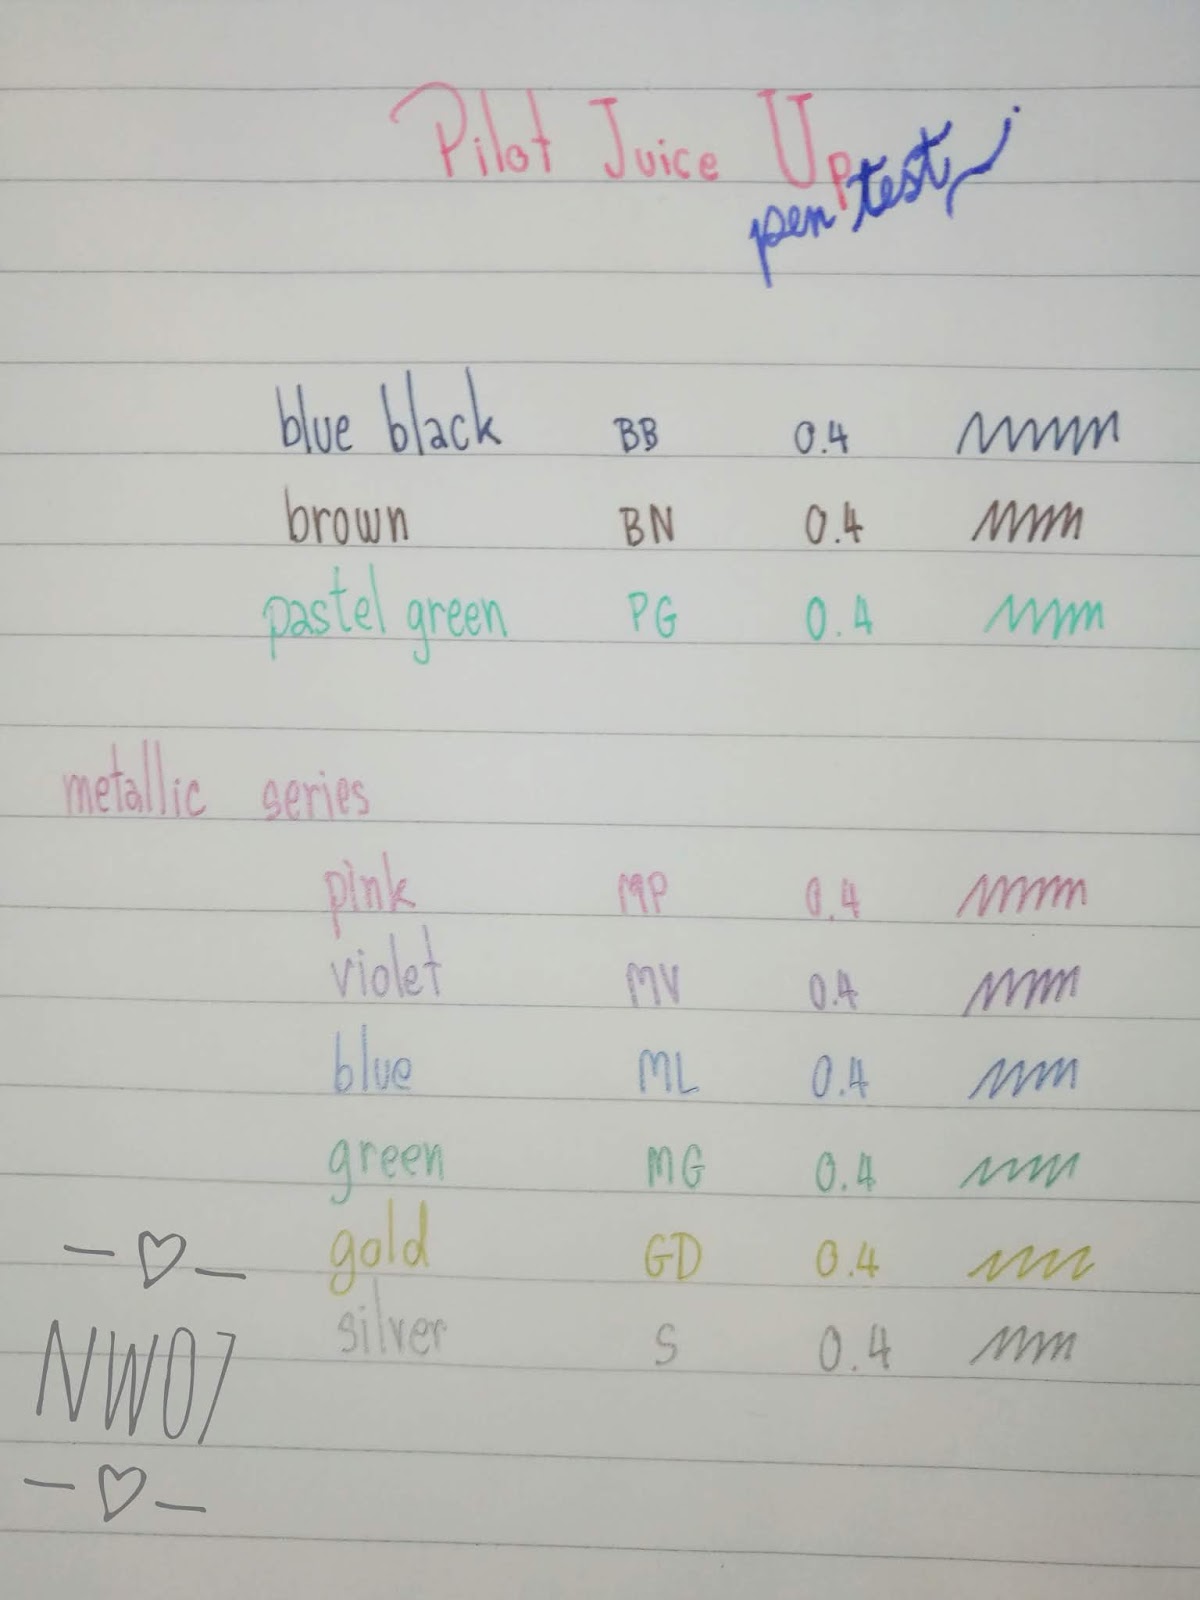 Pilot Juice Up
pen test
blue black BB 0.4
brown BN 0.4
pastel green PG 0.4
metallic series
pink MP 0.4
violet MV 0.4
blue ML 0.4
green MG 0.4
gold GD 0.4
silver S 0.4
NW07